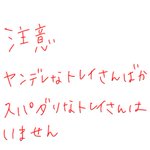 注意
ヤンデレなトレイさんばか
スパダリなトレイさんは
いません